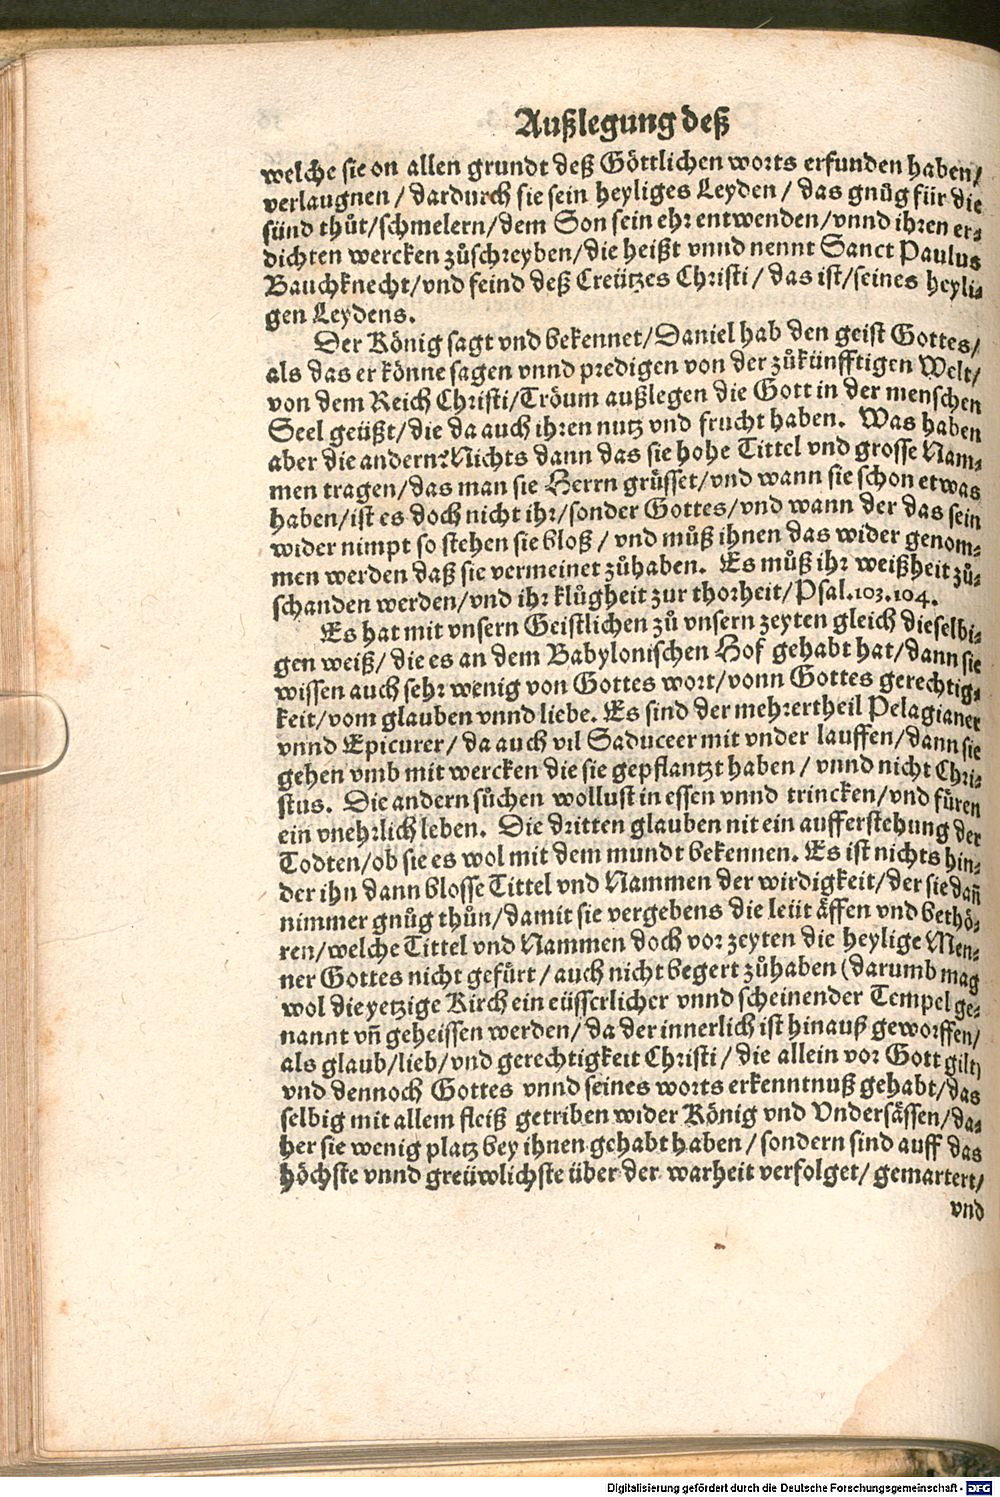 Außlegung deß
welche sie on allen grundt deß Göttlichen worts erfunden haben/
verlaugnen / dardurch sie sein heyliges Leyden / das gnůg für die
sünd thůt/schmelern/dem Son sein ehr entwenden/vnnd ihren er⸗
dichten wercken zůschreyben/die heißt vnnd nennt Sanct Paulus
Bauchknecht/vnd feind deß Creützes Christi / das ist/seines heyli⸗
gen Leydens.
Der König sagt vnd bekennet/Daniel hab den geist Gottes/
als das er könne sagen vnnd predigen von der zůkünfftigen Welt/
von dem Reich Christi/Tröum außlegen die Gott in der menschen
Seel geüßt/die da auch ihren nutz vnd frucht haben. Was haben
aber die andern? Nichts dann das sie hohe Tittel vnd grosse Nam⸗
men tragen/das man sie Herrn grüsset/vnd wann sie schon etwas
haben/ist es doch nicht ihr/sonder Gottes/vnd wann der das sein
wider nimpt so stehen sie bloß / vnd můß ihnen das wider genom⸗
men werden daß sie vermeinet zůhaben. Es můß ihr weißheit zů⸗
schanden werden/vnd ihr klůgheit zur thorheit/Psal.103.104.
Es hat mit vnsern Geistlichen zů vnsern zeyten gleich dieselbi⸗
gen weiß/die es an dem Babylonischen Hof gehabt hat/dann sie
wissen auch sehr wenig von Gottes wort/vonn Gottes gerechtig⸗
keit/vom glauben vnnd liebe. Es sind der mehrertheil Pelagianer
vnnd Epicurer/ da auch vil Saduceer mit vnder lauffen/dann sie
gehen vmb mit wercken die sie gepflantzt haben / vnnd nicht Chri⸗
stus. Die andern sůchen wollust in essen vnnd trincken/vnd füren
ein vnehrlich leben. Die dritten glauben nit ein aufferstehung der
Todten/ob sie es wol mit dem mundt bekennen. Es ist nichts hin⸗
der ihn dann blosse Tittel vnd Nammen der wirdigkeit/der sie dañ
nimmer gnůg thůn/damit sie vergebens die leüt äffen vnd bethö⸗
ren/welche Tittel vnd Nammen doch vor zeyten die heylige Men⸗
ner Gottes nicht gefürt / auch nicht begert zůhaben (darumb mag
wol die yetzige Kirch ein eüsserlicher vnnd scheinender Tempel ge⸗
nannt vñ geheissen werden/ da der innerlich ist hinauß geworffen/
als glaub/lieb/vnd gerechtigkeit Christi / die allein vor Gott gilt)
vnd dennoch Gottes vnnd seines worts erkenntnuß gehabt/das
selbig mit allem fleiß getriben wider König vnd Vndersässen/da⸗
her sie wenig platz bey ihnen gehabt haben / sondern sind auff das
höchste vnnd greüwlichste über der warheit verfolget/ gemartert/
vnd
Digitalisierung gefördert durch die Deutsche Forschungsgemeinschaft - DFG